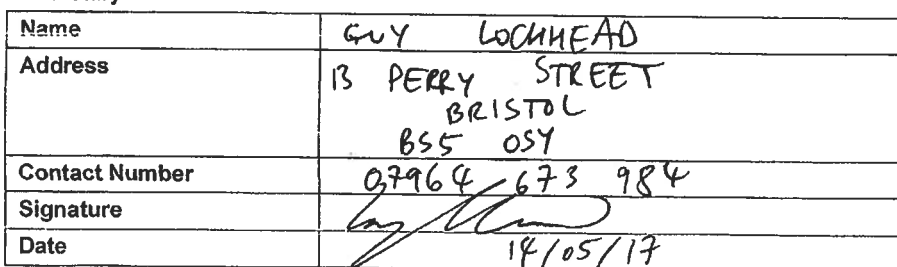 Name GUY LOCHHEAD
Address 13 PERRY STREET
BRISTOL
BS5 0SY
Contact Number 07964 673 984
Signature
Date 14/05/17